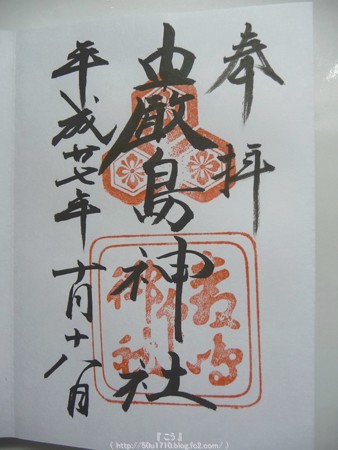 奉拝
嚴島神社
平成廿七年十月十八日
『こう』
( http://50u1710.blog.fc2.com/ )